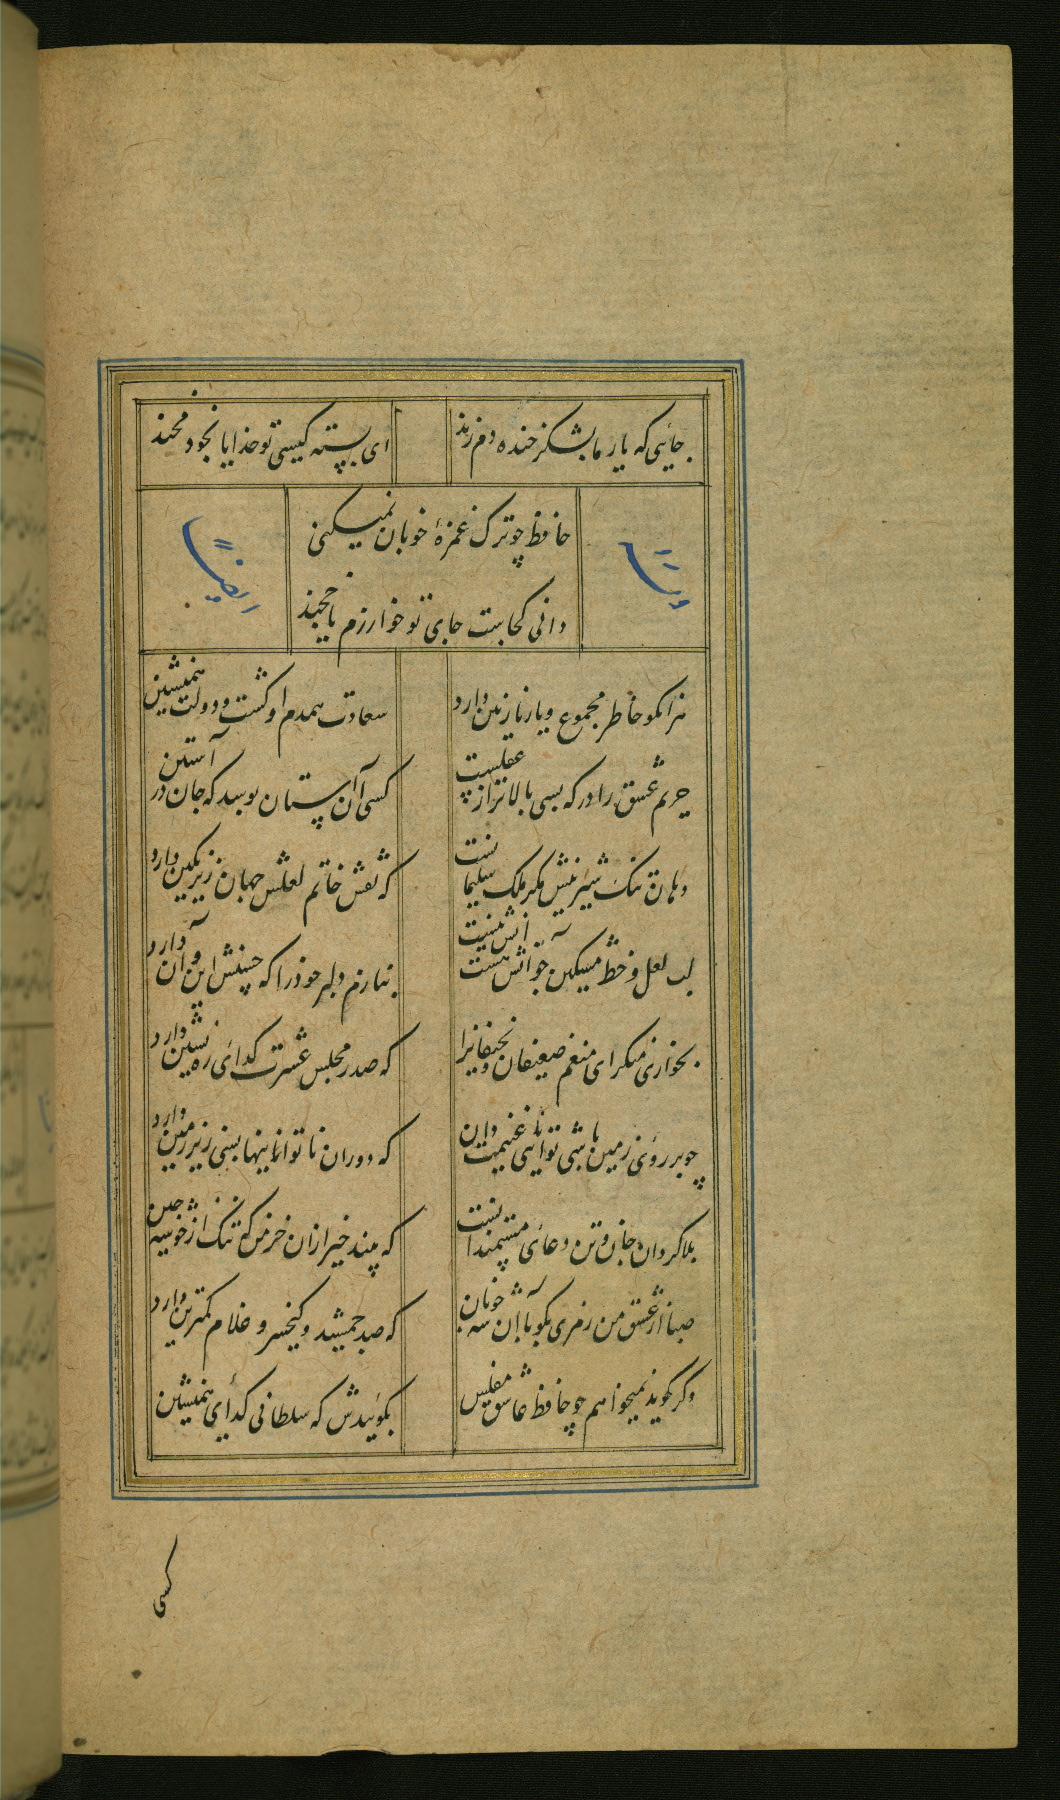 جایی که یار ما بشکر خنده دم زند
ای پسته کیستی تو خدایا بخود مخند
حافظ چو ترک غمزهٔ خوبان نمیکنی
دانی کجاست جای تو خوارزم یا خجند
وله
ایضاً
هرانکو خاطر مجموع و یار نازنین دارد
سعادت همدم او گشت و دولت همنشین
حریم عشق را درکه بسی بالاتر از عقلست
کسی آن آستان بوسد که جان در آستین
دهان تنک شیرینش مکر ملک سلیمانست
که نقش خاتم لعلش جهان زیر نکین دارد
لب لعل و خط مشکین چو آنش هست اینش نیست
بنازم دلبر خود را که حسنش این و آن دارد
بخواری منکر ای منعم ضعیفان و نحیفانرا
که صدر مجلس عشرت کدای ره نشین دارد
چو بر روی زمین باشی توانائی غنیمت دان
که دوران ناتوانیها بسی زیر زمین دارد
بلاکردان جان و تن دعای مستمندانست
که بیند خیر ازان خرمن که ننک از خوشه چین
صبا از عشق من رمزی بکو با آن شه خوبان
که صد جمشید و کیخسرو غلام کمترین دارد
وکر کوید نمیخواهم چو حافظ عاشق مفلس
بکوئیدش که سلطانی کدای همنشین
کسی